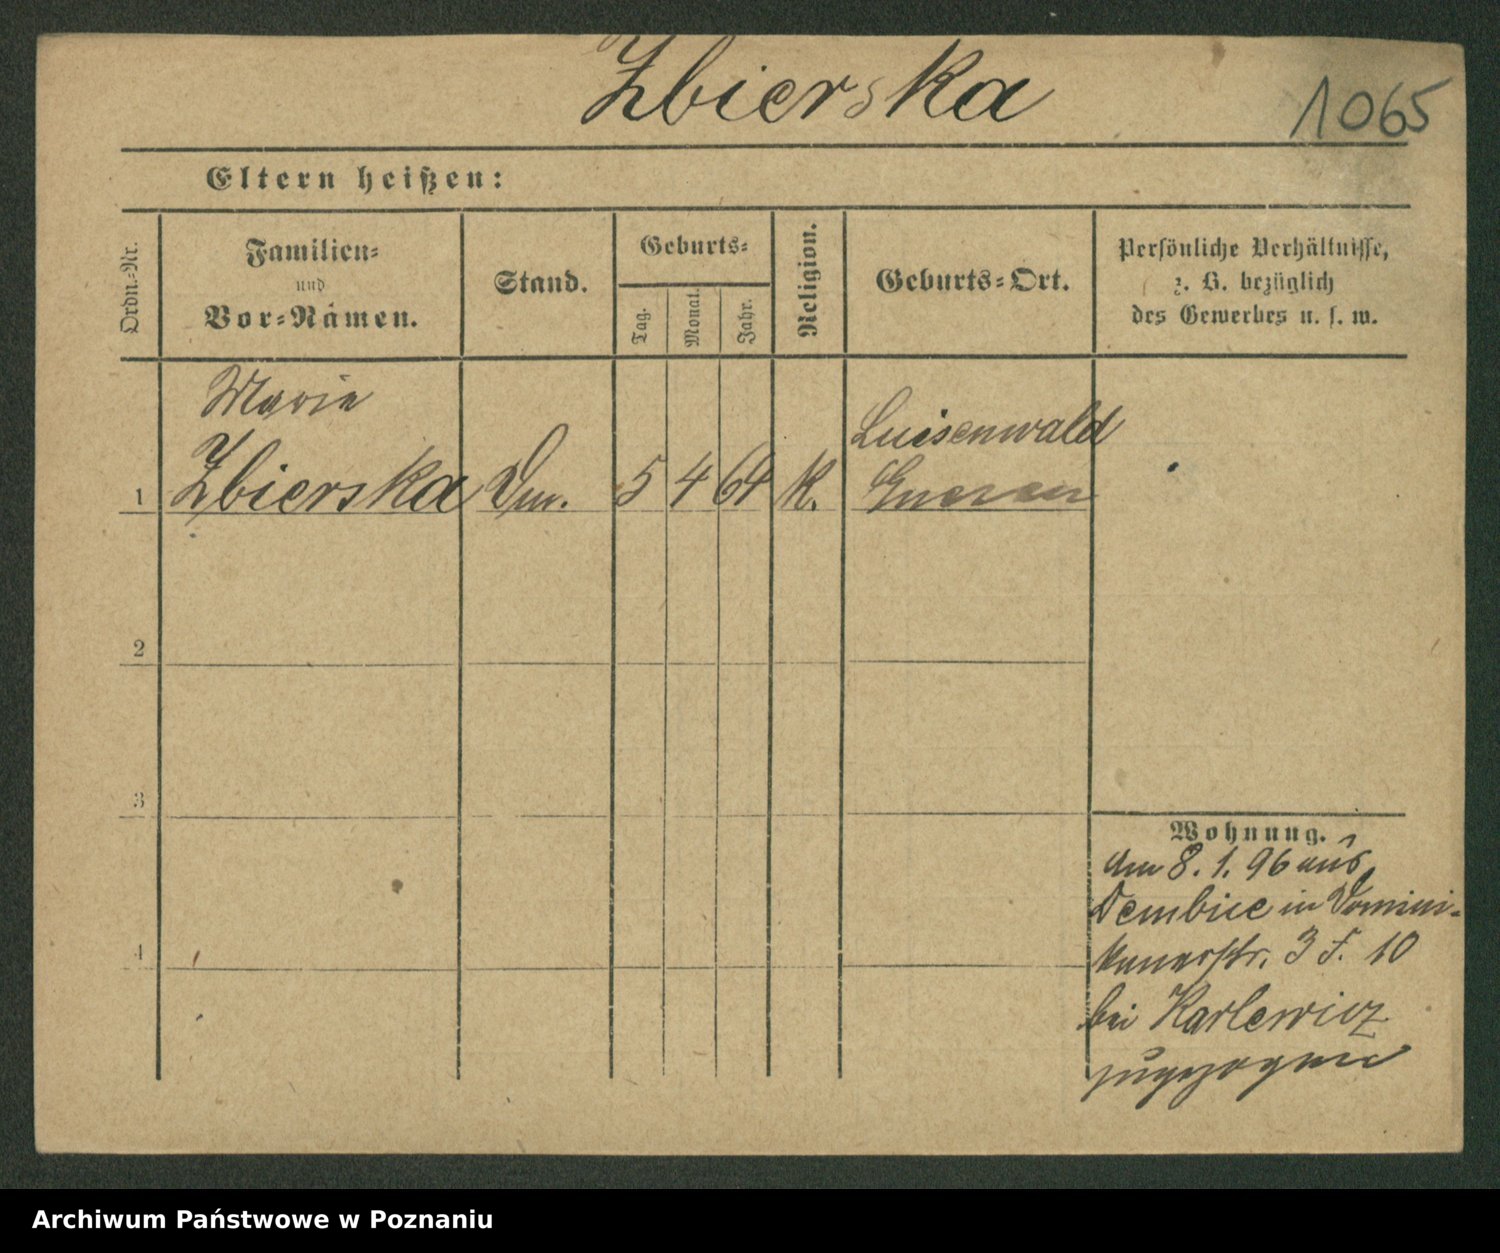 Zbierska
1065
Eltern heißen:
Ordn.-Nr.
Familien-
und
Vor-Namen.
Stand.
Geburts-
Tag.
Monat.
Jahr.
Religion.
Geburts-Ort.
Persönliche Verhältnisse,
z. B. bezüglich
des Gewerbes u. s. w.
Marie
Luisenwald
1 Zbierska 5 4 64 K. Gnesen
2
3
4
Wohnung.
Am 8. 1. 96 aus
Dembiec in Domini-
kanerstr. 3 F. 10
bei Karlewicz
zugezogen
Archiwum Państwowe w Poznaniu